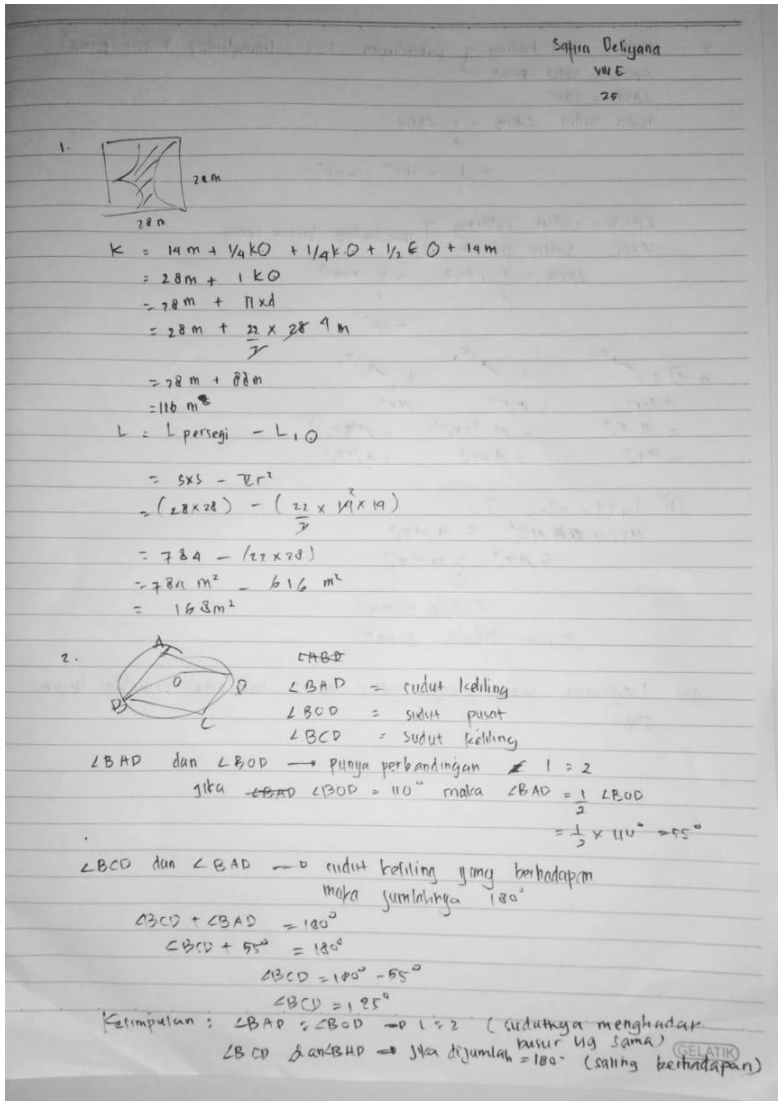 Safira Deliyana
VIII E
25
1.
28 m
28 m
K = 14 m + 1/4 kO + 1/4 k.O + 1/2 k O + 14 m
= 28 m + 1 kO
= 28 m + π x d
= 28 m + 22/7 x 28 4 m
= 28 m + 88 m
= 116 m
L = L persegi - L, O
= s x s - πr²
= (28 x 28) - (22/7 x 14 2 x 14)
= 784 - (22 x 28)
= 784 m² - 616 m²
= 168 m²
2.
A
B
O
D
C
∠ABD
∠BAD = sudut keliling
∠BOD = sudut pusat
∠BCD = sudut keliling
∠BAD dan ∠BOD → punya perbandingan 1 : 2
jika ∠BAD ∠BOD = 110° maka ∠BAD = 1/2 ∠BOD
= 1/2 x 110° = 55°
∠BCD dan ∠BAD → sudut keliling yang berhadapan
maka jumlahnya 180°
∠BCD + ∠BAD = 180°
∠BCD + 55° = 180°
∠BCD = 180° - 55°
∠BCD = 125°
Kesimpulan : ∠BAD : ∠BOD → 1 : 2 (sudutnya menghadap
busur yg sama)
∠BCD dan ∠BAD → jika dijumlah = 180° (saling berhadapan)
GELATIK